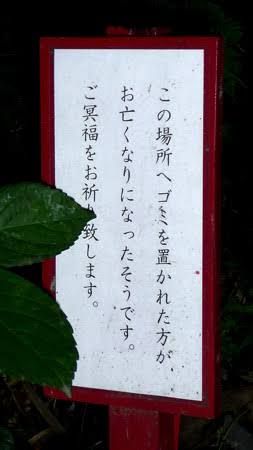 この場所へゴミを置かれた方が、
お亡くなりになったそうです。
ご冥福をお祈り致します。